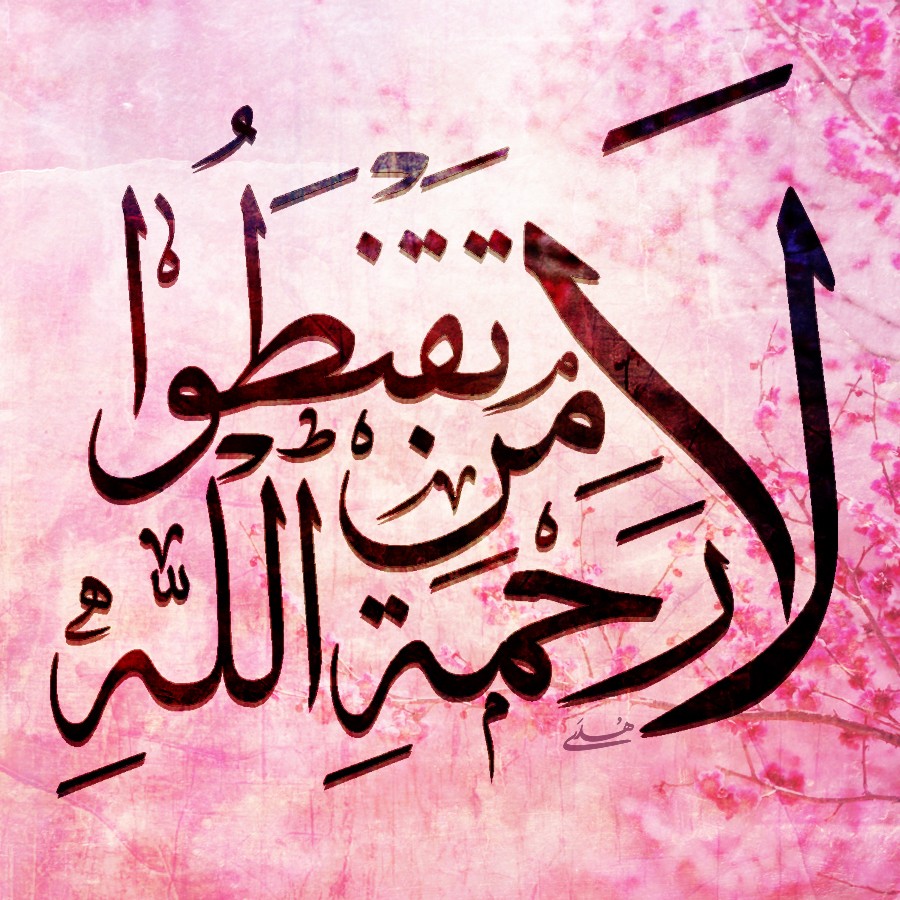 لَا تَقْنَطُوا
مِن
رَّحْمَةِ اللَّهِ
هُدَى